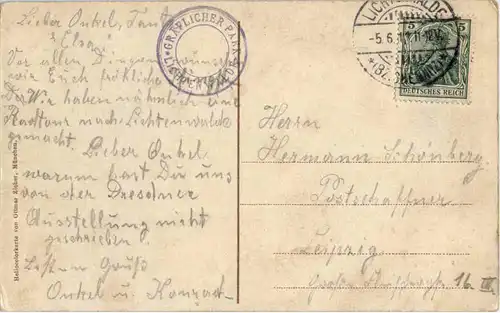 Lieber Onkel, Tante
u. Elsa!
Vor allen Dingen wünschen
wir Euch fröhliche
Wir haben nämlich eine
Radtour nach Lichtenwalde
gemacht.
Lieber Onkel,
warum hast Du uns
von der Dresdner
Ausstellung nicht
geschrieben?
Besten Gruß
Onkel u. Konrad
Heliocolorkarte von Ottmar Zieher, München.
GRÄFLICHER PARK
LICHTENWALDE
LICHTENWALDE
-5.6.11.11-12V.
5
5
DEUTSCHES REICH
Herrn
Hermann Schönberg
Postschaffner
Leipzig
Große 16 III.